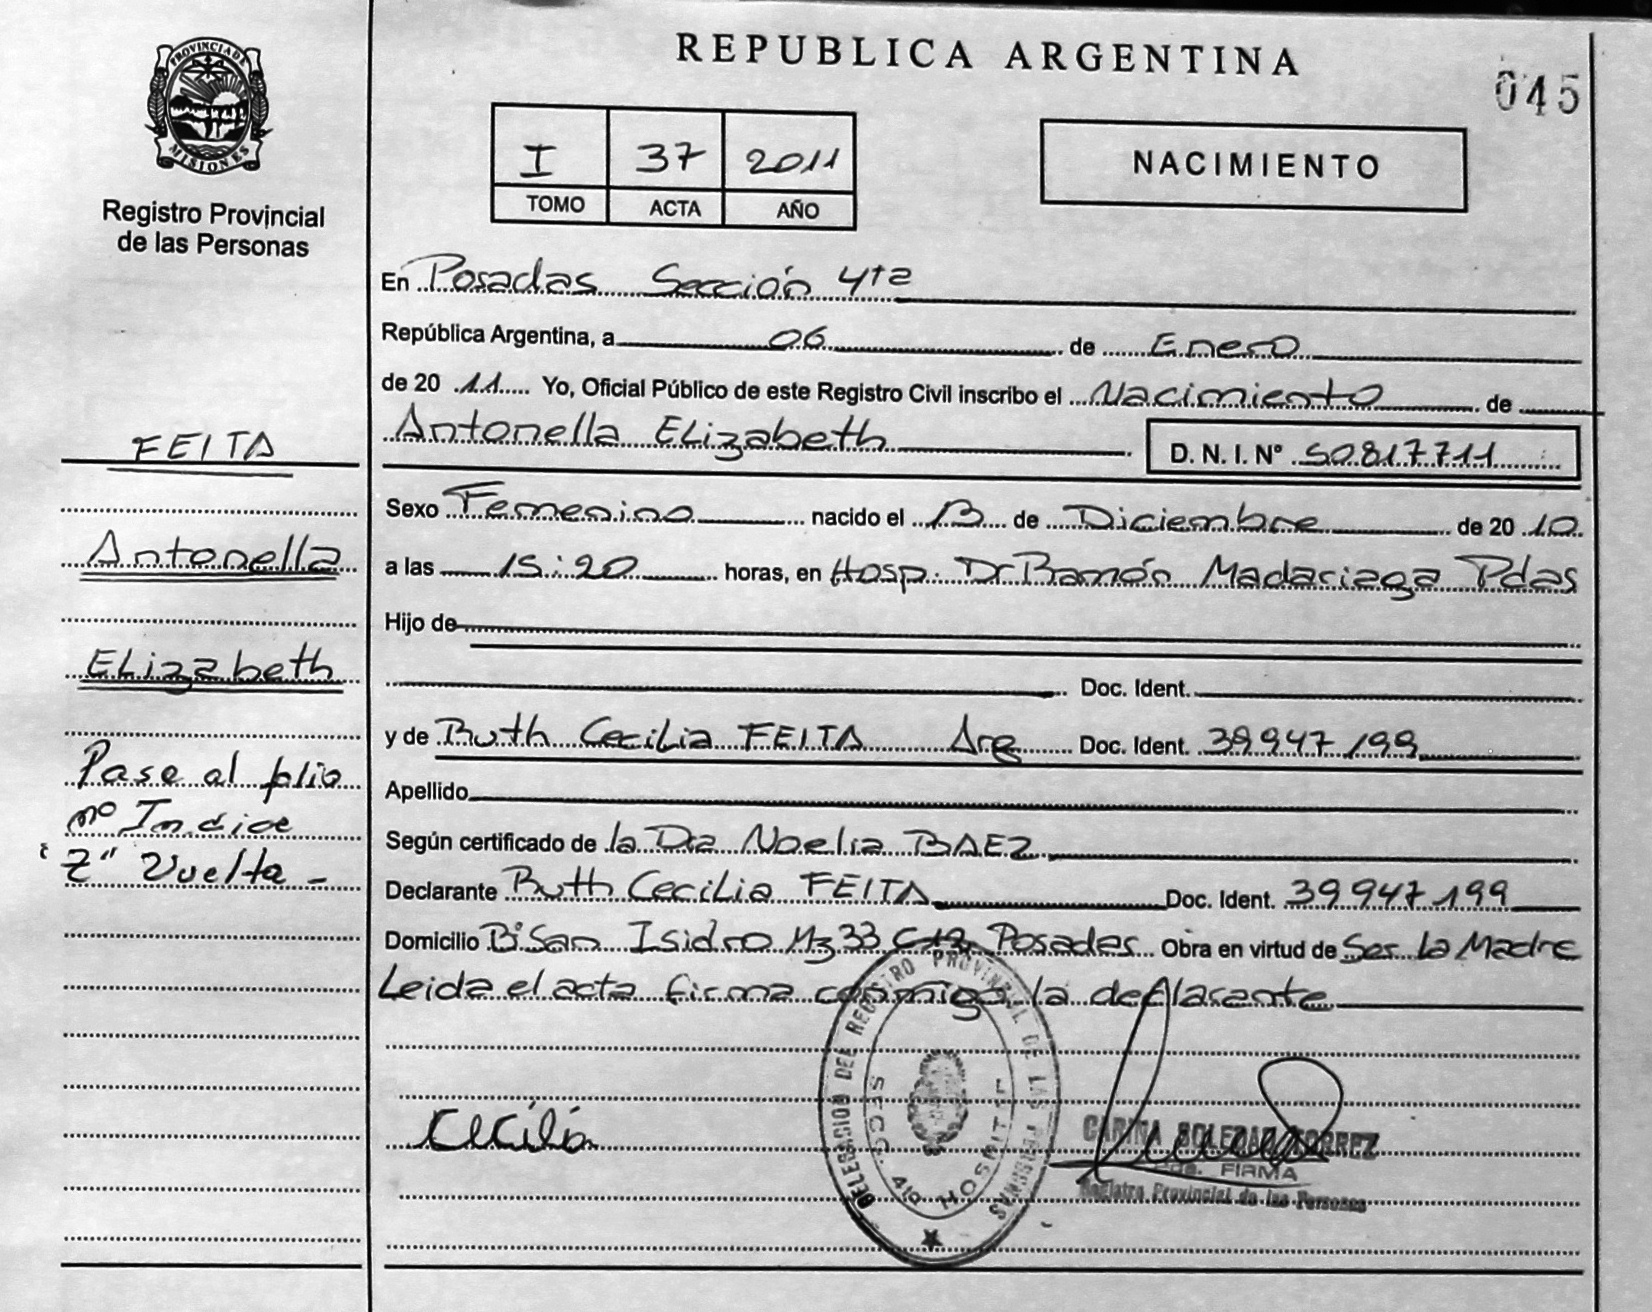 PROVINCIA DE
MISIONES
Registro Provincial
de las Personas
FEITA
Antonella
ELizabeth
Pase al folio
nº Indice
"2" Vuelta -
REPUBLICA ARGENTINA
045
I 37 2011
TOMO ACTA AÑO
NACIMIENTO
En Posadas Sección 4ta
República Argentina, a 06 de Enero
de 20 11 Yo, Oficial Público de este Registro Civil inscribo el Nacimiento de
Antonella ELizabeth D. N. I. Nº 50817711
Sexo Femenino nacido el 13 de Diciembre de 20 10
a las 15:20 horas, en Hosp. Dr Ramón Madariaga Pdas
Hijo de
Doc. Ident.
y de Ruth Cecilia FEITA Arg Doc. Ident. 39947199
Apellido
Según certificado de la Dra Noelia BAEZ
Declarante Ruth Cecilia FEITA Doc. Ident. 39947199
Domicilio Bº San Isidro Mz 33 C12 Posadas Obra en virtud de Ser La Madre
Leida el acta firma conmigo la declarante
DELEGACION DEL REGISTRO PROVINCIAL DE LAS PERSONAS
SECC. 4ta HOSPITAL
Cecilia
CARINA SOLEDAD TORREZ
FIRMA
Registro Provincial de las Personas